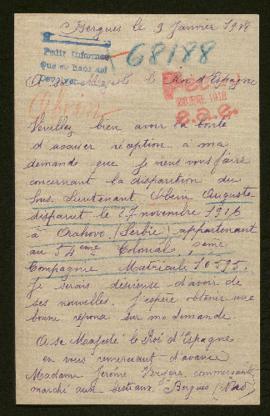 Bergues le 3 Janvier 1918
Pedir Informes
68188
A sa Majesté le Roi d'Espagne
Veuillez bien avoir la bonté
d'accuser réception à ma
demande que je viens vous faire
concernant la disparition du
Sous Lieutenant Auguste
disparut le 27 novembre 1916
à (Serbie) appartenant
au 54ème Colonial, ème
Compagnie Matricule
Je serais désireuse d'avoir de
ses nouvelles. J'espère obtenir une
bonne réponse sur ma demande
A sa Majesté le Roi d'Espagne
en vous remerciant d'avance
Madame Jérôme commerçante
marché aux bestiaux Bergues (Nord)